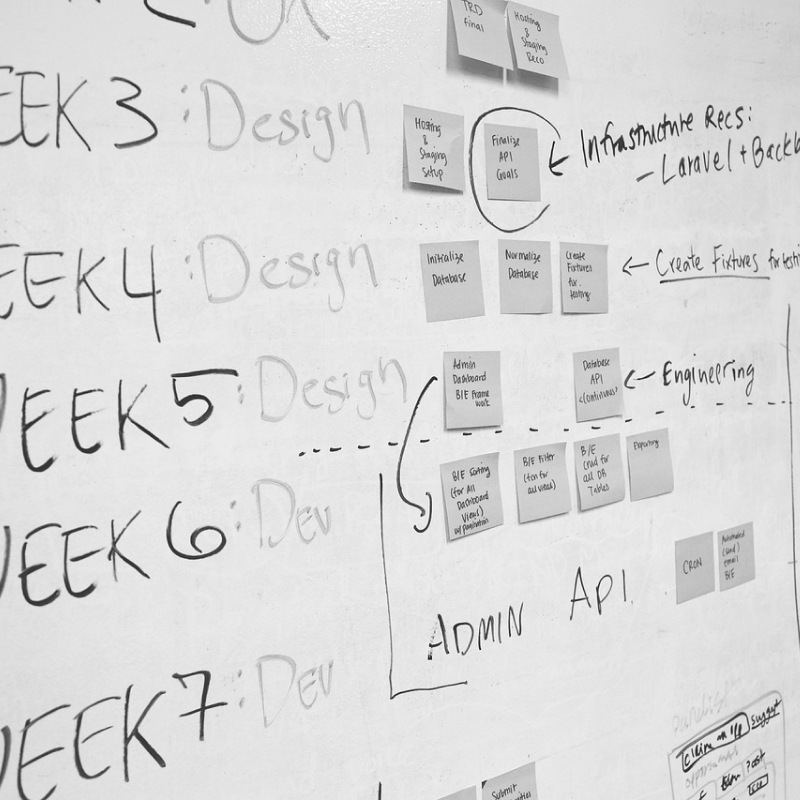 TRD
final
Hosting
&
Staging
Reco
EEK 3 : Design
Hosting
&
Staging
Setup
Finalize
API
Goals
← Infrastructure Recs:
- Laravel + Backb
EEK 4 : Design
Initialize
Database
Normalize
Database
Create
Fixtures
for
testing
← Create Fixtures for testi
WEEK 5 : Design
Admin
Dashboard
B/E Frame
work
Database
API
<Continuous>
← Engineering
WEEK 6 : Dev
B/E Sorting
(for All
Dashboard
Views)
w/ pagination
B/E Filter
(for
all views)
B/E
Crud for
all DB
Tables
Exporting
CRON
Automated
email
B/E
ADMIN API
WEEK 7 : Dev
Submit